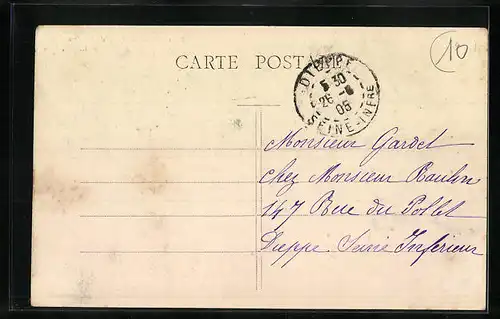 10
CARTE POSTALE
DIEPPE
5 30
26 - 6
05
SEINE-INFRE
Monsieur Gardet
chez Monsieur Raulin
147 Rue du Pollet
Dieppe Seine Inférieur